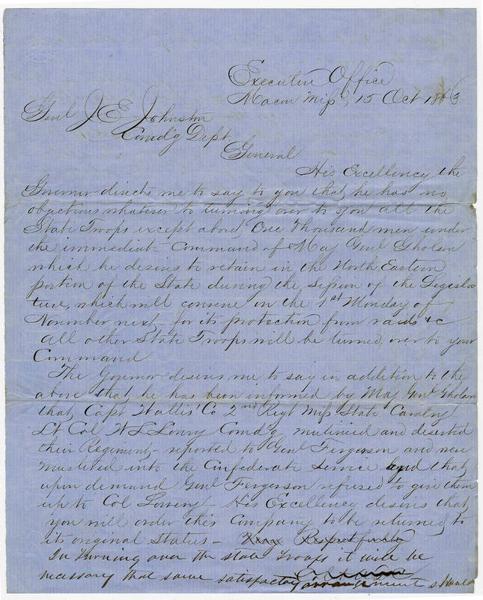 Executive Office
Macon Miss, 15 Oct 1863
Genl J. E. Johnston
Comd'g Dept
General
His Excellency the
Governor directs me to say to you that he has no
objections whatever to turning over to you all the
State Troops except about One Thousand men under
the immediate Command of Maj Genl Gholson
which he desires to retain in the North Eastern
portion of the State during the session of the Legisla
ture, which will convene in the 1st Monday of
November next for its protection from raids &c
All other State Troops will be turned over to your
Command
The Governor desires me to say in addition to the
above that he has been informed by Maj Genl Gholson
that Capt Wallis Co 2nd Regt Miss State Cavalry
Lt Col W L Lowry Comd'g mutinied and deserted
their Regiment - reported to Genl Ferguson and were
mustered into the Confederate service and that
upon demand Genl Ferguson refused to give them
up to Col Lowry - His Excellency desires that
you will order this Company to be returned to
its original Status - Respectfully
In turning over the state troops it will be
necessary that some satisfactory arrangement should